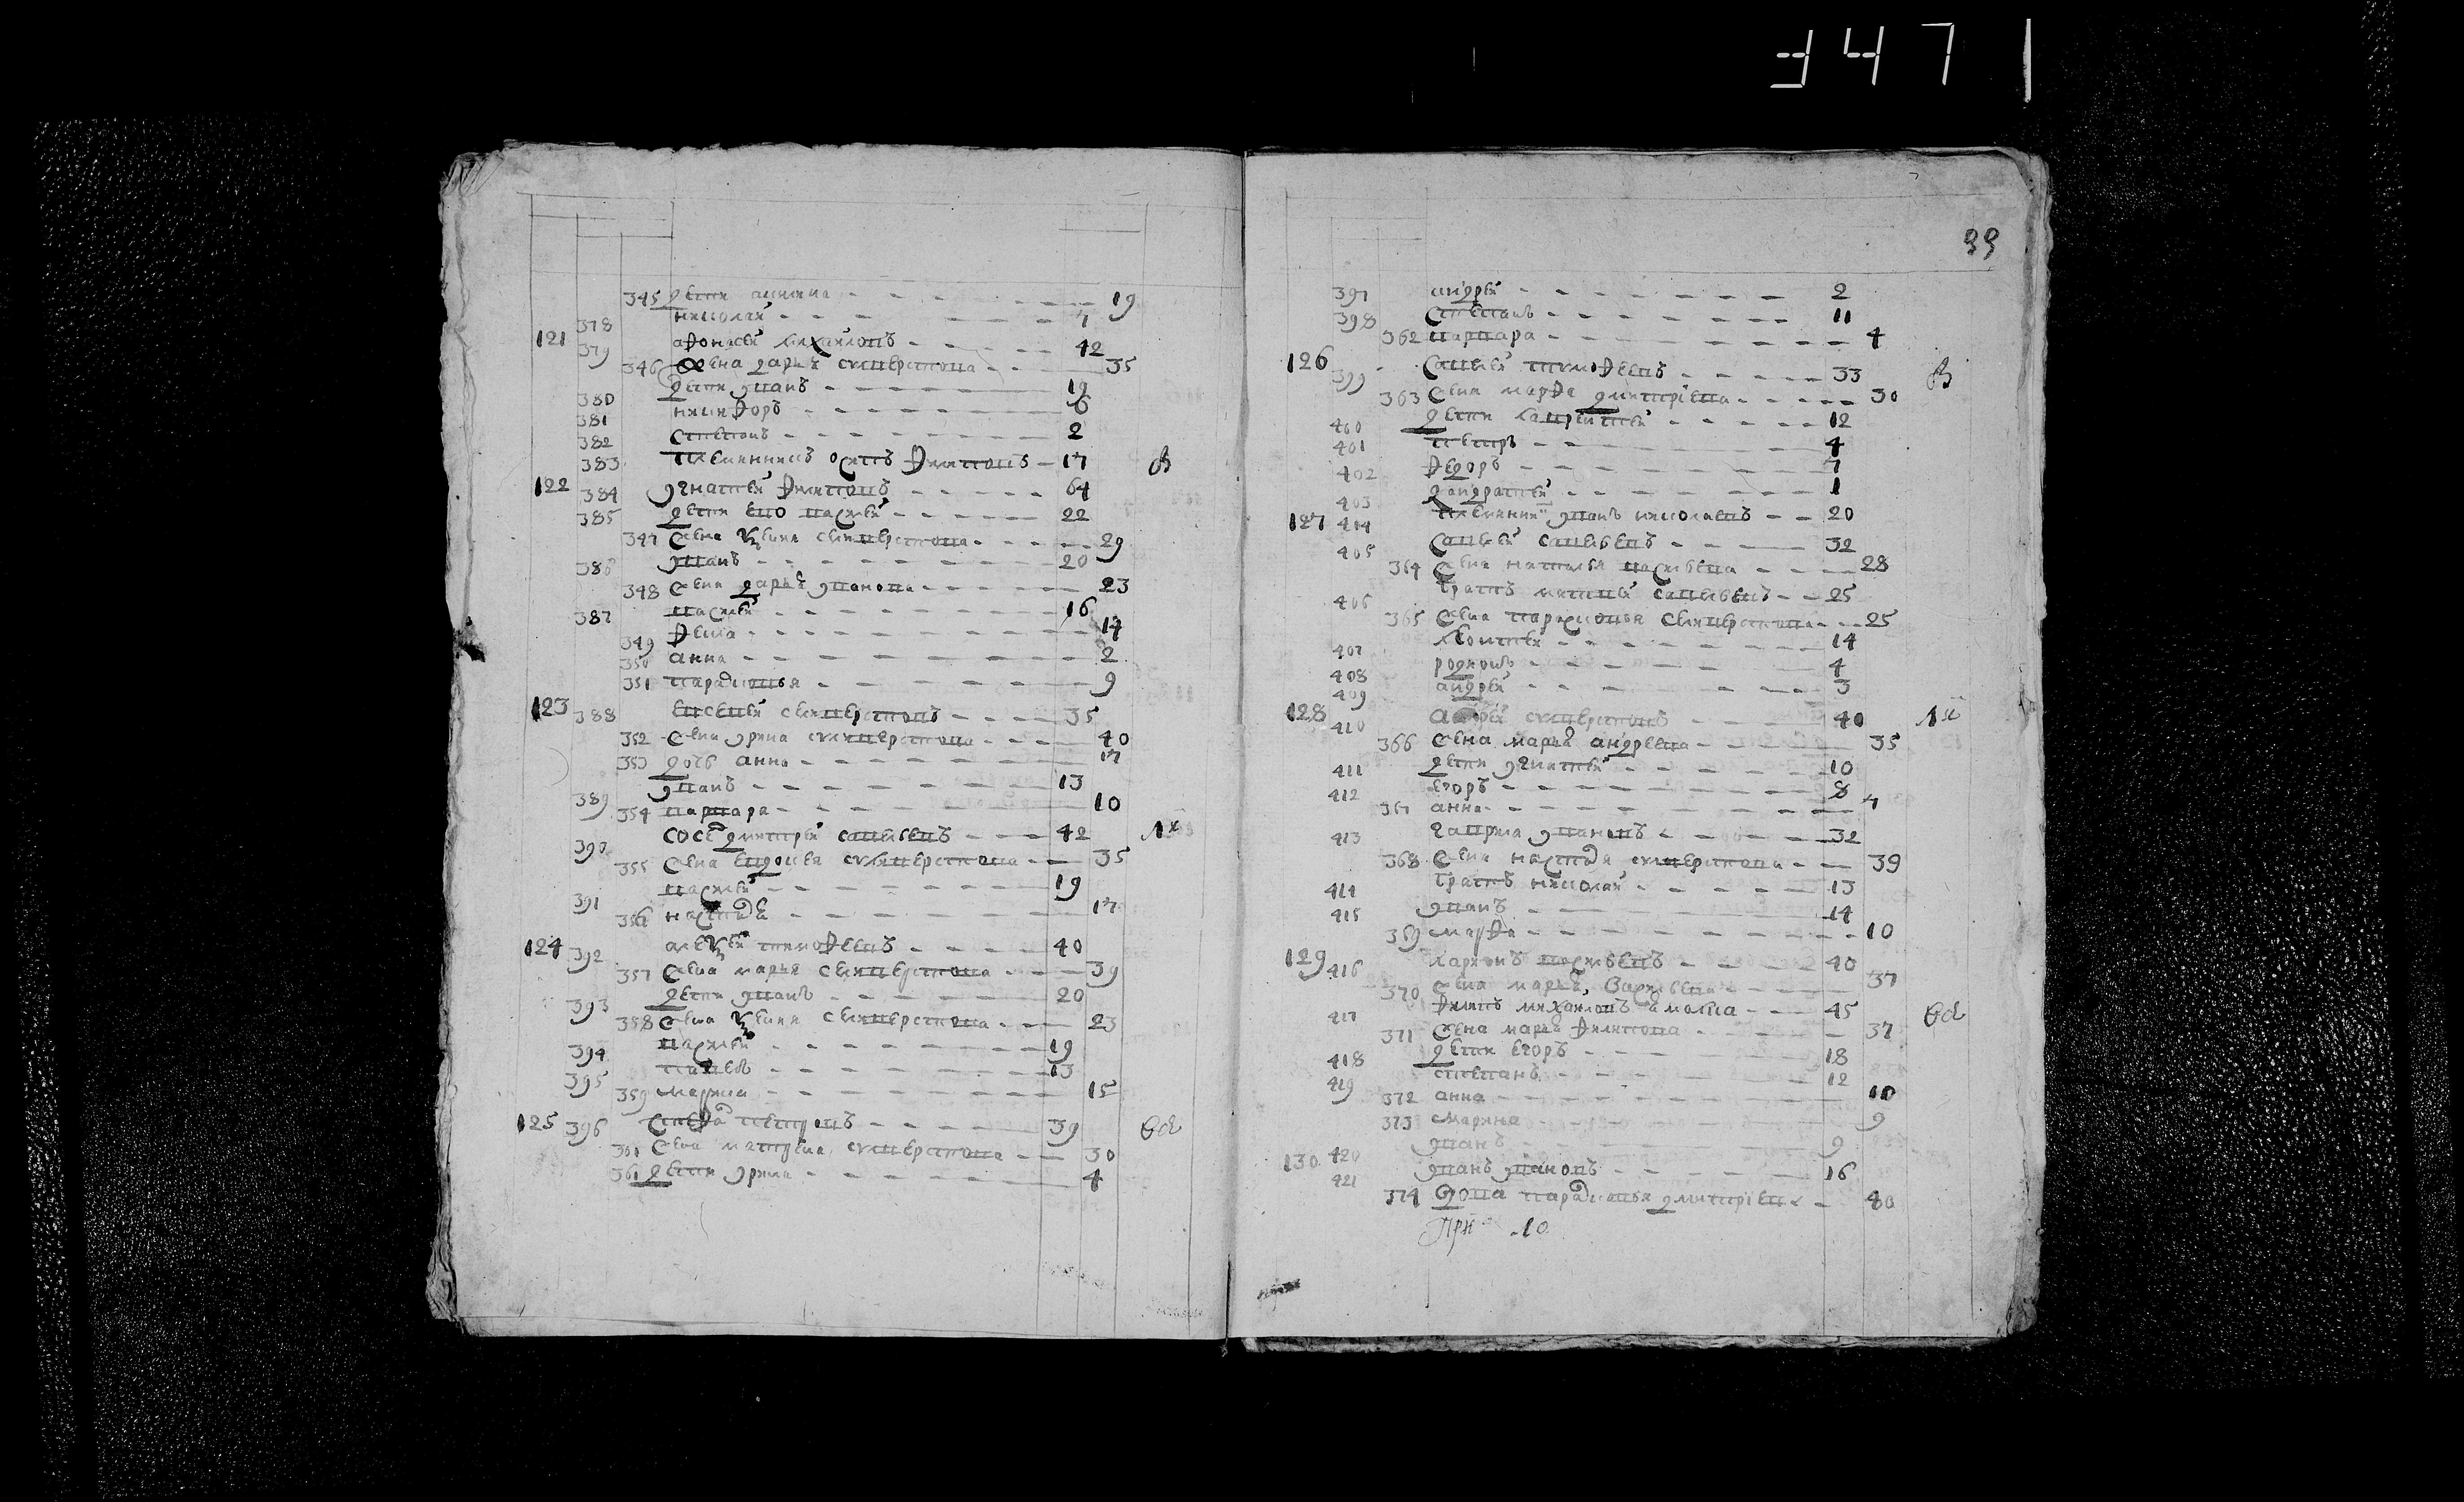 345 дети аксиниа 19
378 николай 7
121 379 афонасеи михаиловъ 42
346 жена дарья силиверстова 35
380 дети иванъ 19
381 никифоръ 6
382 степанъ 2
383 племянникъ осипъ филиповъ 17
122 384 игнатеи филиповъ 64
385 дети ево васлеи 22
347 жена ксения селиверстова 29
386 иванъ 20
348 жена дарья иванова 23
387 васлеи 16
349 фекла 14
350 анна 2
351 парасковья 9
123 388 евсевеи селиверстовъ 35
352 жена ирина силиверстова 40
353 дочь анна 17
389 иванъ 13
354 варвара 10
390 сосе дмитреи савельевъ 42
355 жена евдокея силиверстова 35
391 васлеи 19
356 настася 17
124 392 алексеи тимофеевъ 40
357 жена марья селиверстова 39
393 дети иванъ 20
358 жена ксения селиверстова 23
394 васлеи 19
395 павелъ 13
359 марина 15
125 396 стефа петровъ 39
360 жена матрена силиверстова 30
361 дети ирина 4
99
397 андреи 2
398 степанъ 11
362 варвара 4
126 399 савелеи тимофеевъ 33
363 жена марфа дмитриева 30
400 дети лаврентеи 12
401 петръ 4
402 федоръ 7
403 кондратеи 1
127 404 племянни иванъ николаевъ 20
405 савелеи савельевъ 32
364 жена наталья васильева 28
406 братъ матвеи савельевъ 25
365 жена парасковья селиверстова 25
407 леонтеи 14
408 родионъ 4
409 андреи 3
128 410 андреи силиверстовъ 40
366 жена марья андреева 35
411 дети игнатеи 10
412 егоръ 8
367 анна 7
413 гаврила ивановъ 32
368 жена настася силиверстова 39
414 братъ николаи 13
415 иванъ 14
369 марфа 10
129 416 ларионъ васильевъ 40
370 жена марья 37
417 филипъ михаиловъ 45
371 жена марья филипова 37
418 дети егоръ 18
419 степанъ 12
372 анна 10
373 марина 9
420 иванъ 9
130 421 иванъ ивановъ 16
374 вдова парасковья дмитриева 40
при 10